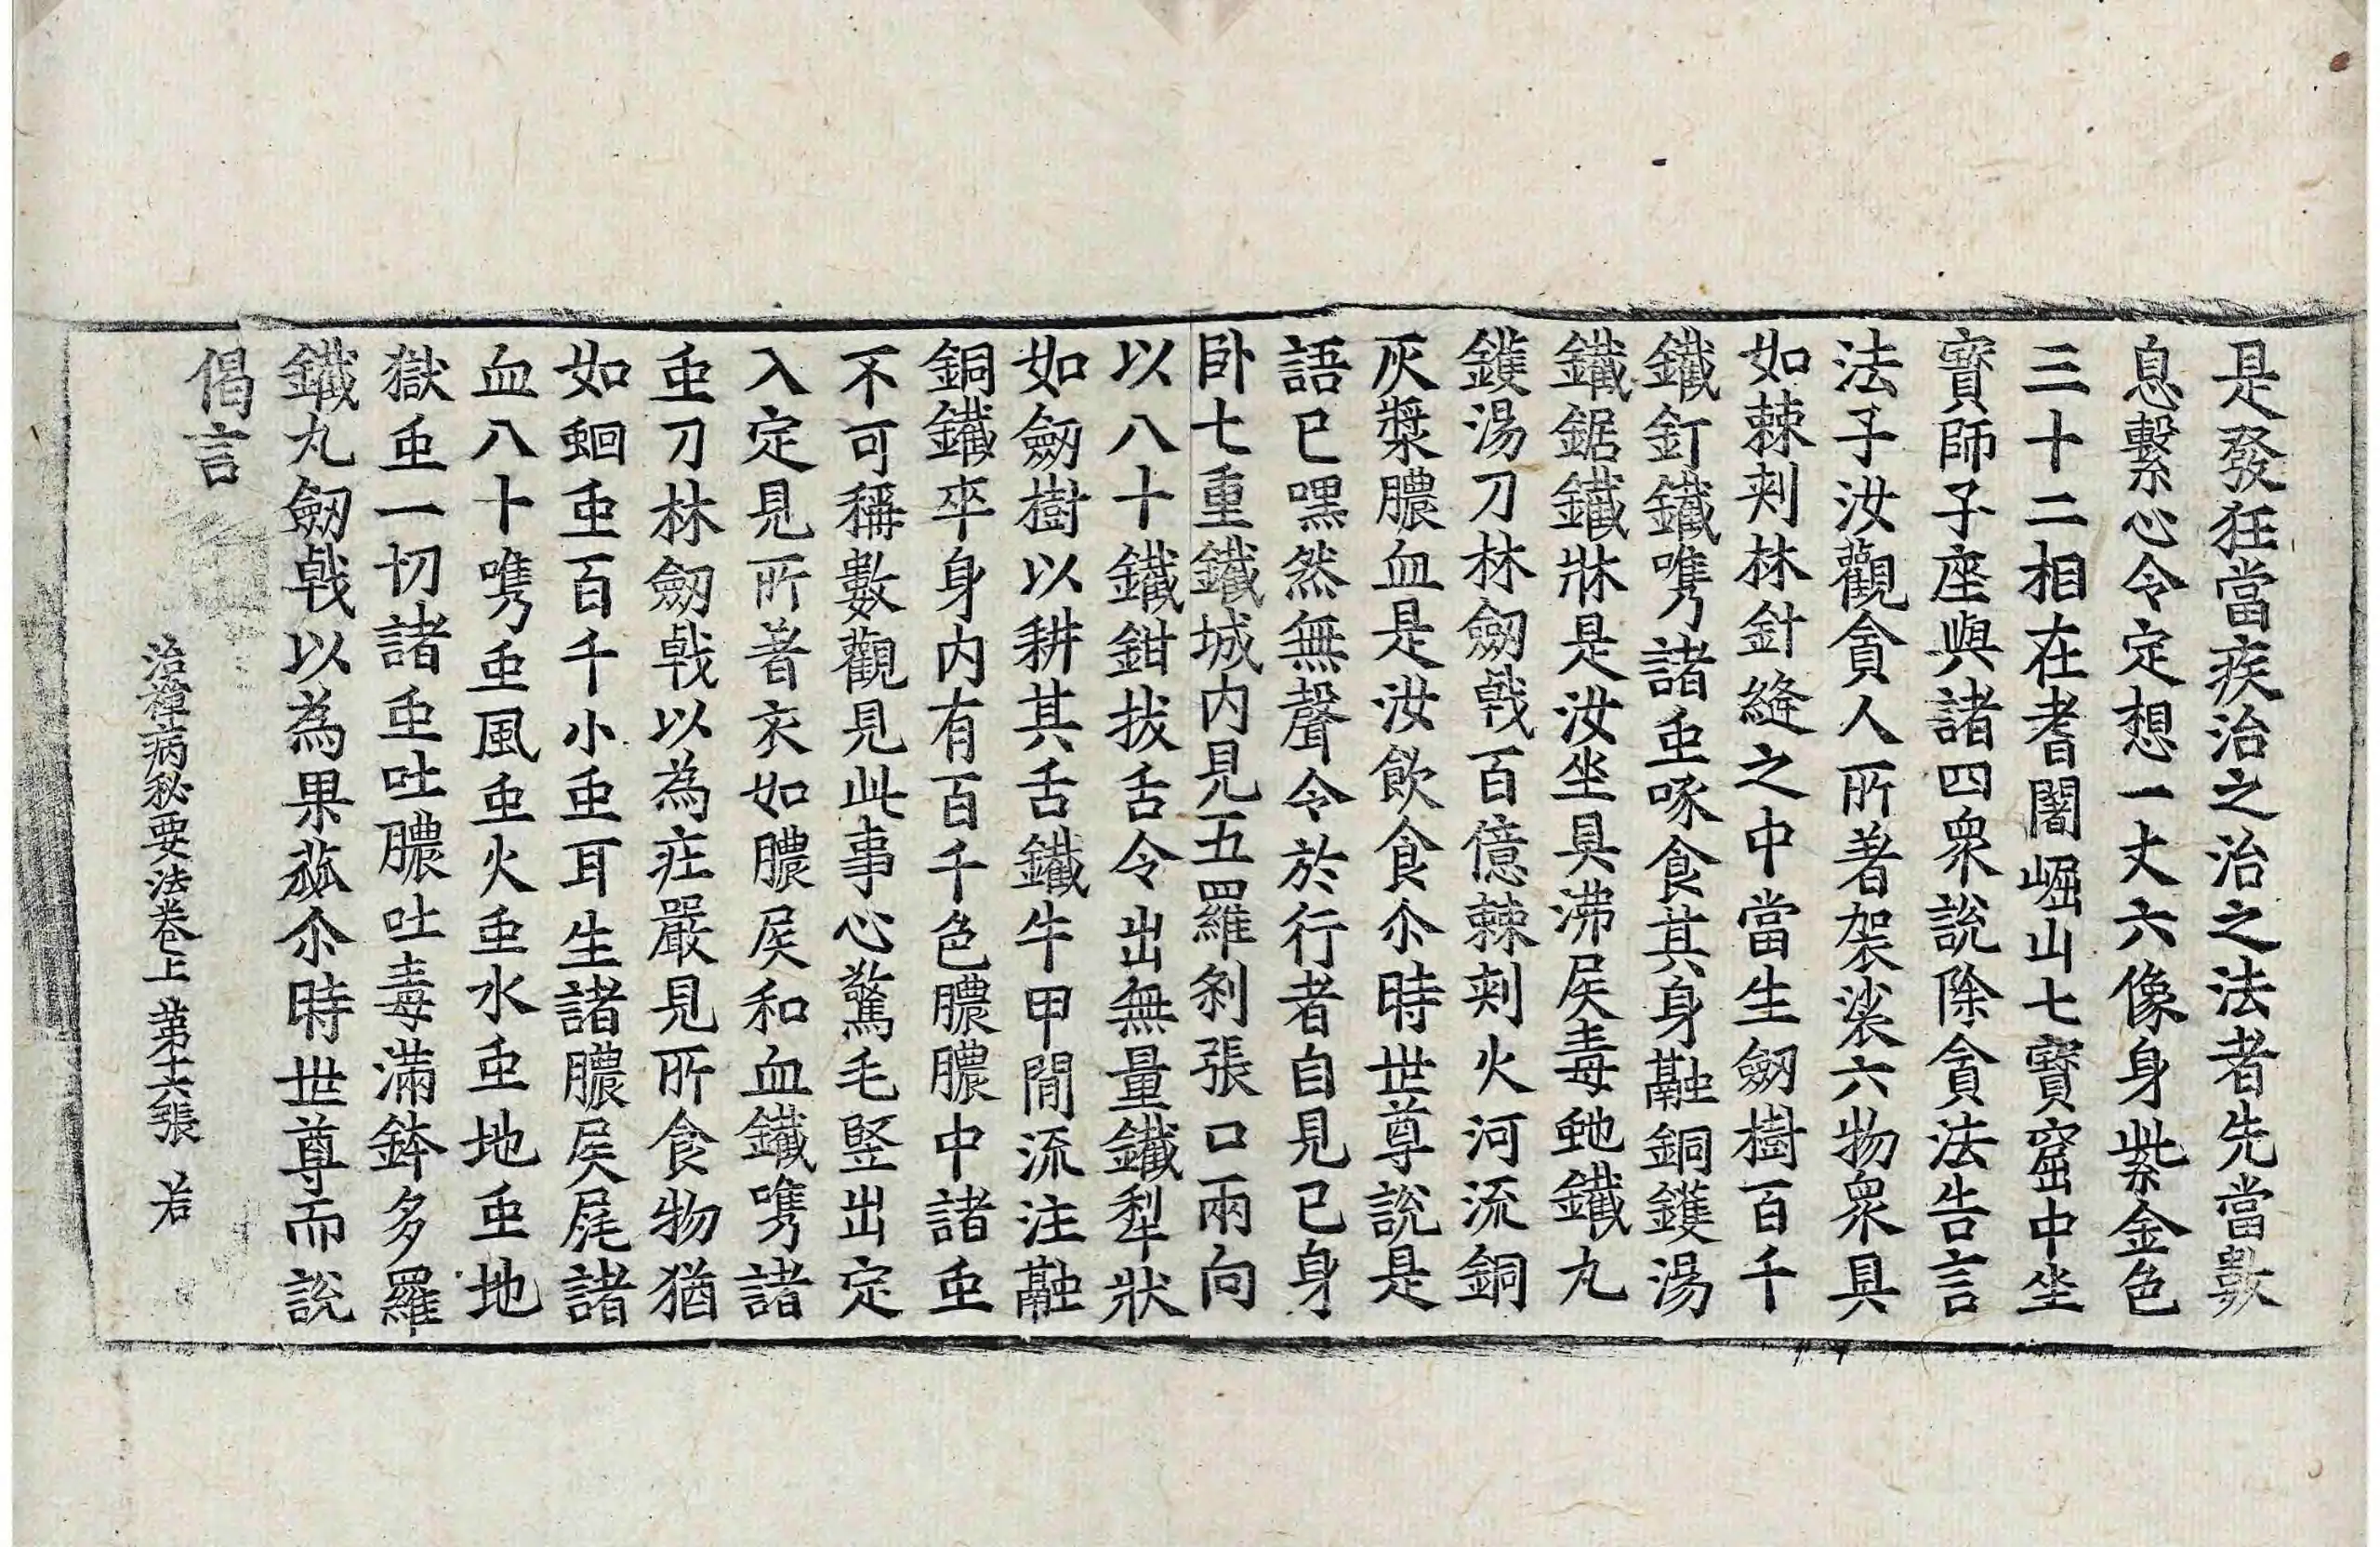 是發狂當疾治之治之法者先當數
息繫心令定想一丈六像身紫金色
三十二相在耆闍崛山七寳窟中坐
寳師子座與諸四衆說除貪法告言
法子汝觀貪人所著袈裟六物衆具
如棘刾林針縫之中當生劒樹百千
鐵釘鐵㗖諸䖝啄食其身融銅鑊湯
鐵鋸鐵牀是汝坐具沸屎毒虵鐵丸
鑊湯刀林劒㦸百億棘刾火河流銅
灰漿膿血是汝飮食尒時世尊說是
語已嘿然無聲令於行者自見已身
卧七重鐵城内見五羅刹張口兩向
以八十鐵鉗拔舌令出無量鐵犁狀
如劒樹以耕其舌鐵牛甲閒流注融
銅鐵卒身内有百千色膿膿中諸䖝
不可稱數觀見此事心驚毛竪出定
入定見所著衣如膿屎和血鐵㗖諸
䖝刀林劒㦸以為莊嚴見所食物猶
如蛔䖝百千小䖝耳生諸膿屎尾諸
血八十㗖䖝風䖝火䖝水䖝地䖝地
獄䖝一切諸䖝吐膿吐毒滿鉢多羅
鐵丸劒㦸以為果蓏尒時世尊而說
偈言
治禪病秘要法卷上 第十六張 若